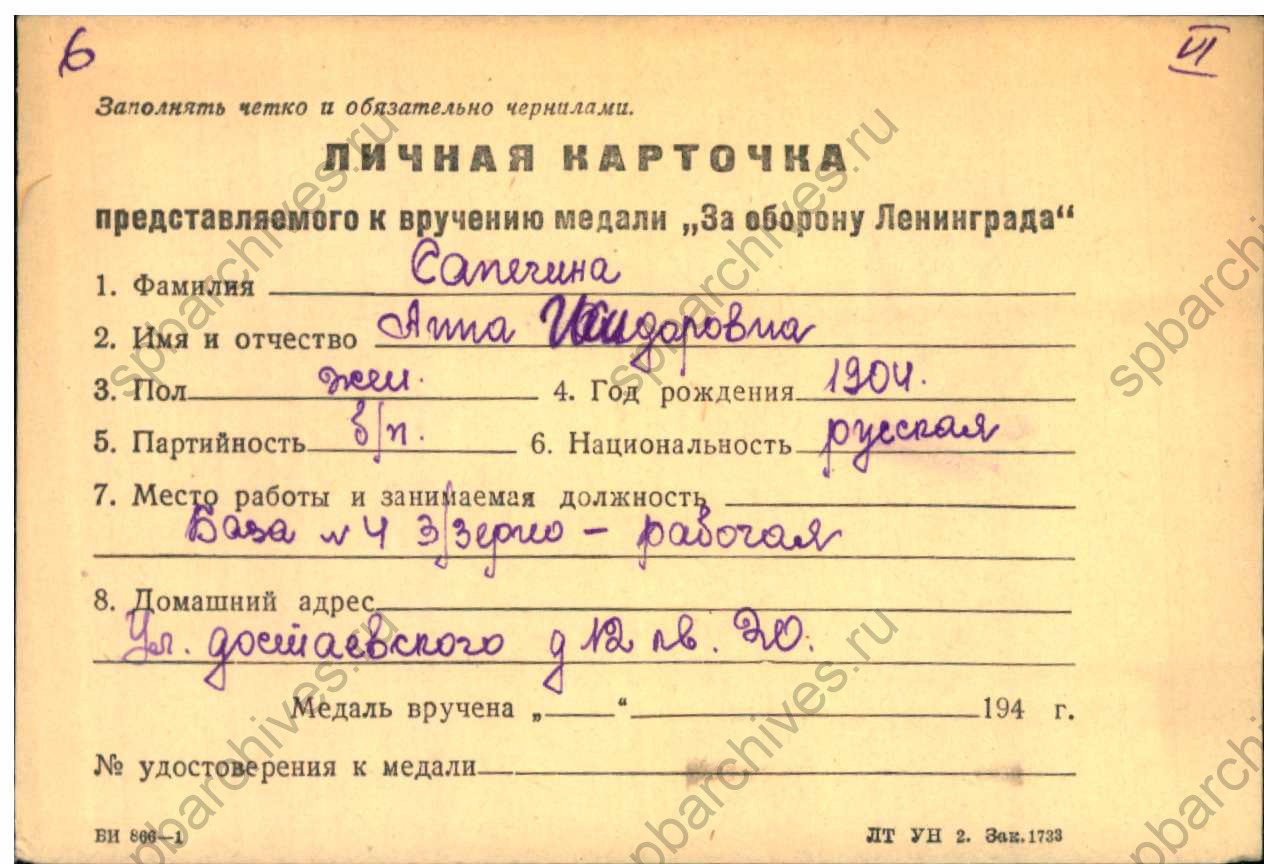 6
VI
Заполнять четко и обязательно чернилами.
ЛИЧНАЯ КАРТОЧКА
представляемого к вручению медали „За оборону Ленинграда“
1. Фамилия Сапегина
2. Имя и отчество Анна Исидоровна
3. Пол жен. 4. Год рождения 1904.
5. Партийность б/п. 6. Национальность русская
7. Место работы и занимаемая должность
База № 4 З/зерно – рабочая
8. Домашний адрес
Ул. достаевского д 12 кв. 20.
Медаль вручена „ “ 194 г.
№ удостоверения к медали
БИ 866—1 ЛТ УН 2. Зак. 1733
spbarchives.ru